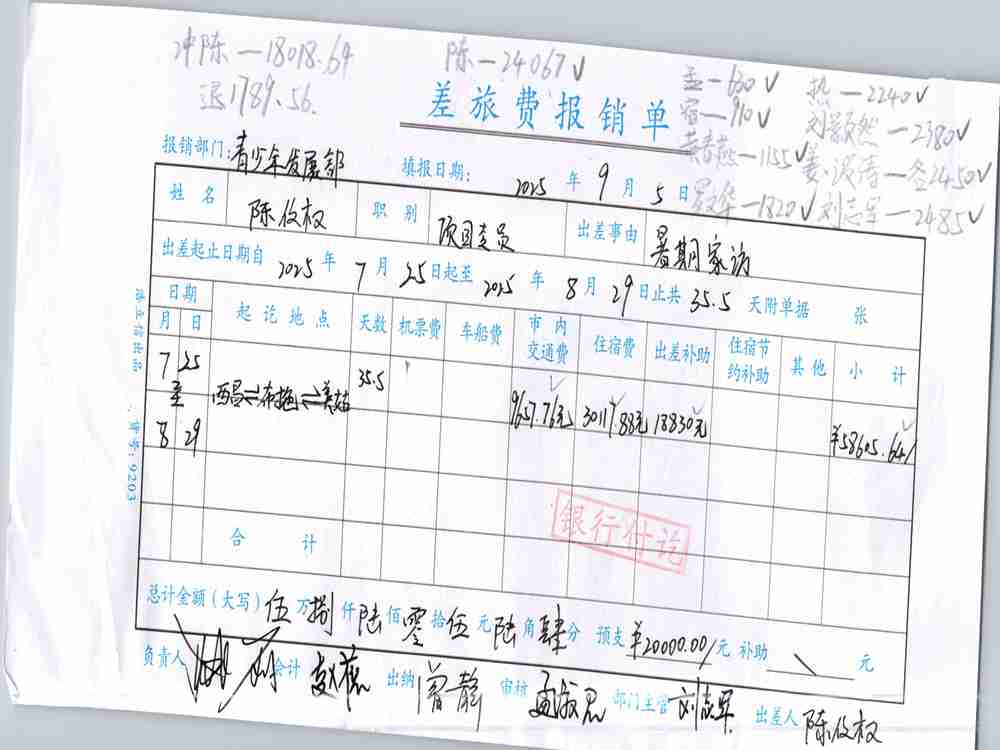 冲陈—18018.64 陈—24067✓
退1789.56. 孟—630✓ 热—2240✓
差旅费报销单 宿—910✓ 刘颢然—2380✓
—1155✓ 姜波涛—各2450✓
—1820✓ 刘志军—2485✓
报销部门:青少年发展部 填报日期: 2025年9月5日
姓名 陈伩权 职别 项目专员 出差事由 暑期家访
出差起止日期自2025年7月25日起至2025年8月29日止共35.5天附单据 张
日期 起讫地点 天数 机票费 车船费 市内交通费 住宿费 出差补助 住宿节约补助 其他 小计
月 日
7 25 至 8 29 西昌⇌布拖⇌美姑 35.5 9657.76元 30117.88元 18830元 ¥58605.64/
合计
银行付讫
总计金额(大写)伍万捌仟陆佰零拾伍元陆角肆分 预支¥20000.00/元 补助 元
负责人 会计 出纳 曾静 审核 孟淑恩 部门主管 刘志军 出差人 陈伩权
审号:9203